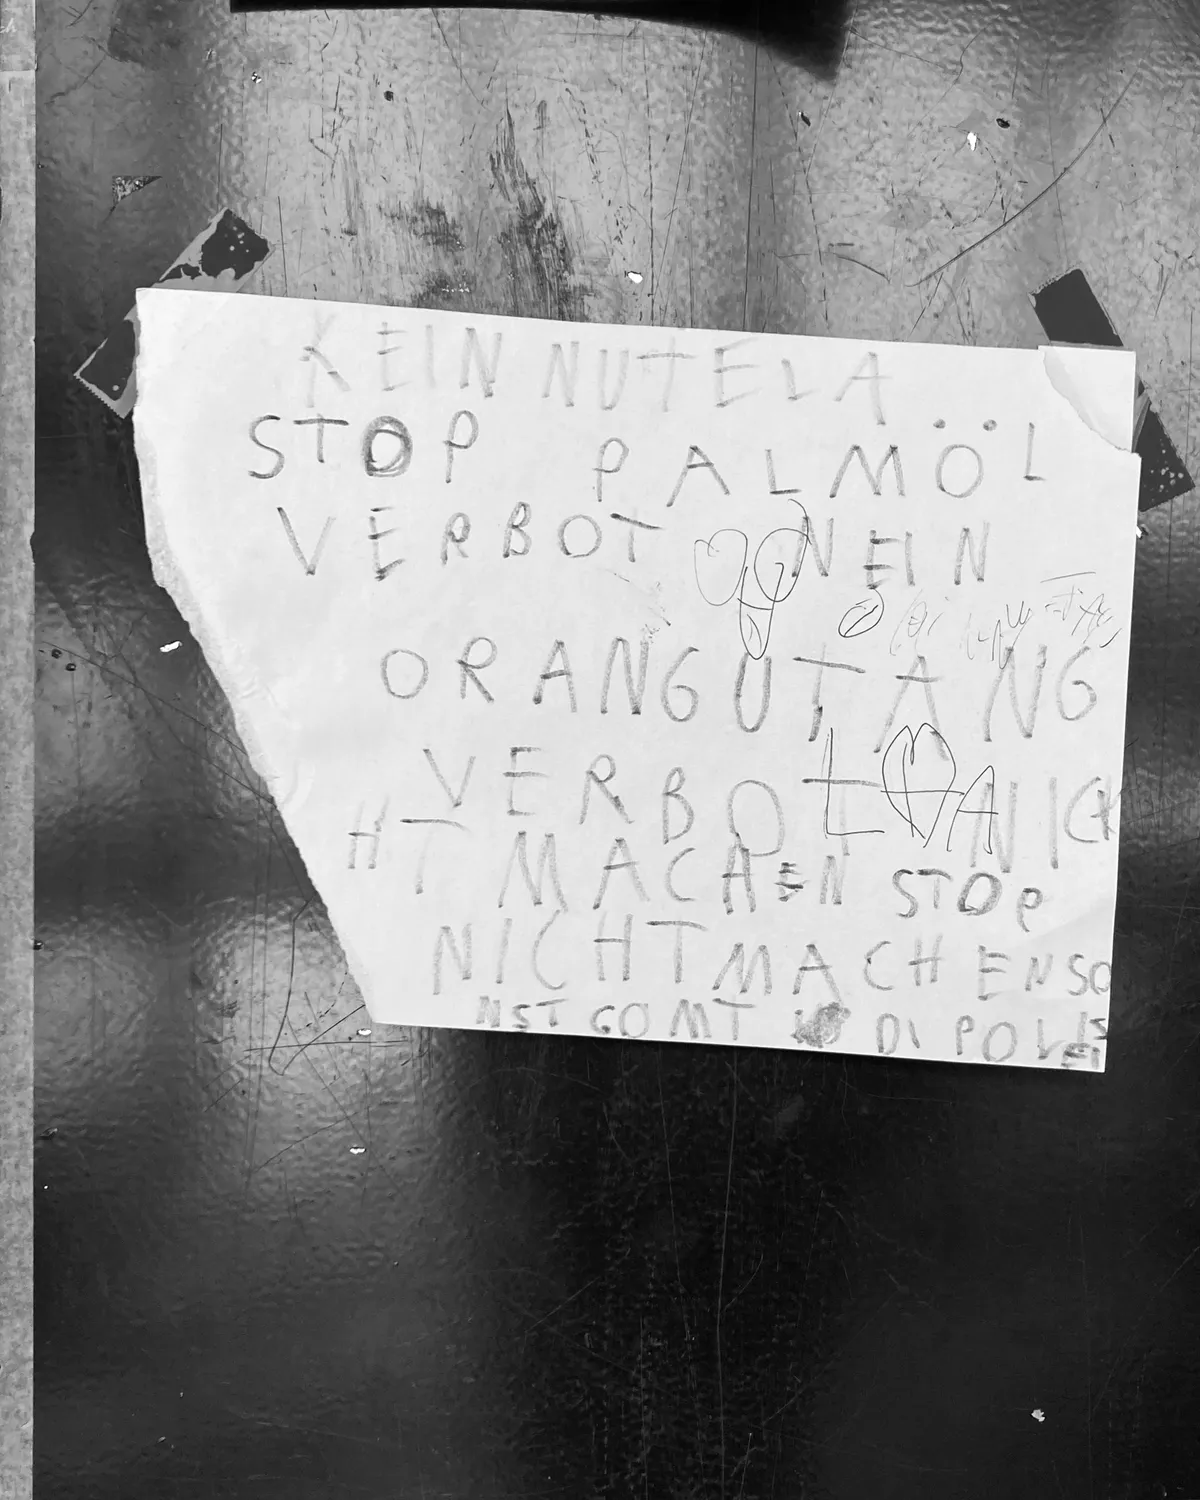 KEIN NUTELA
STOP PALMÖL
VERBOT NEIN
ORANGUTANG
VERBOT NICH
HT MACHEN STOP
NICHT MACHEN SO
NST GOMT DI POLIS
EI